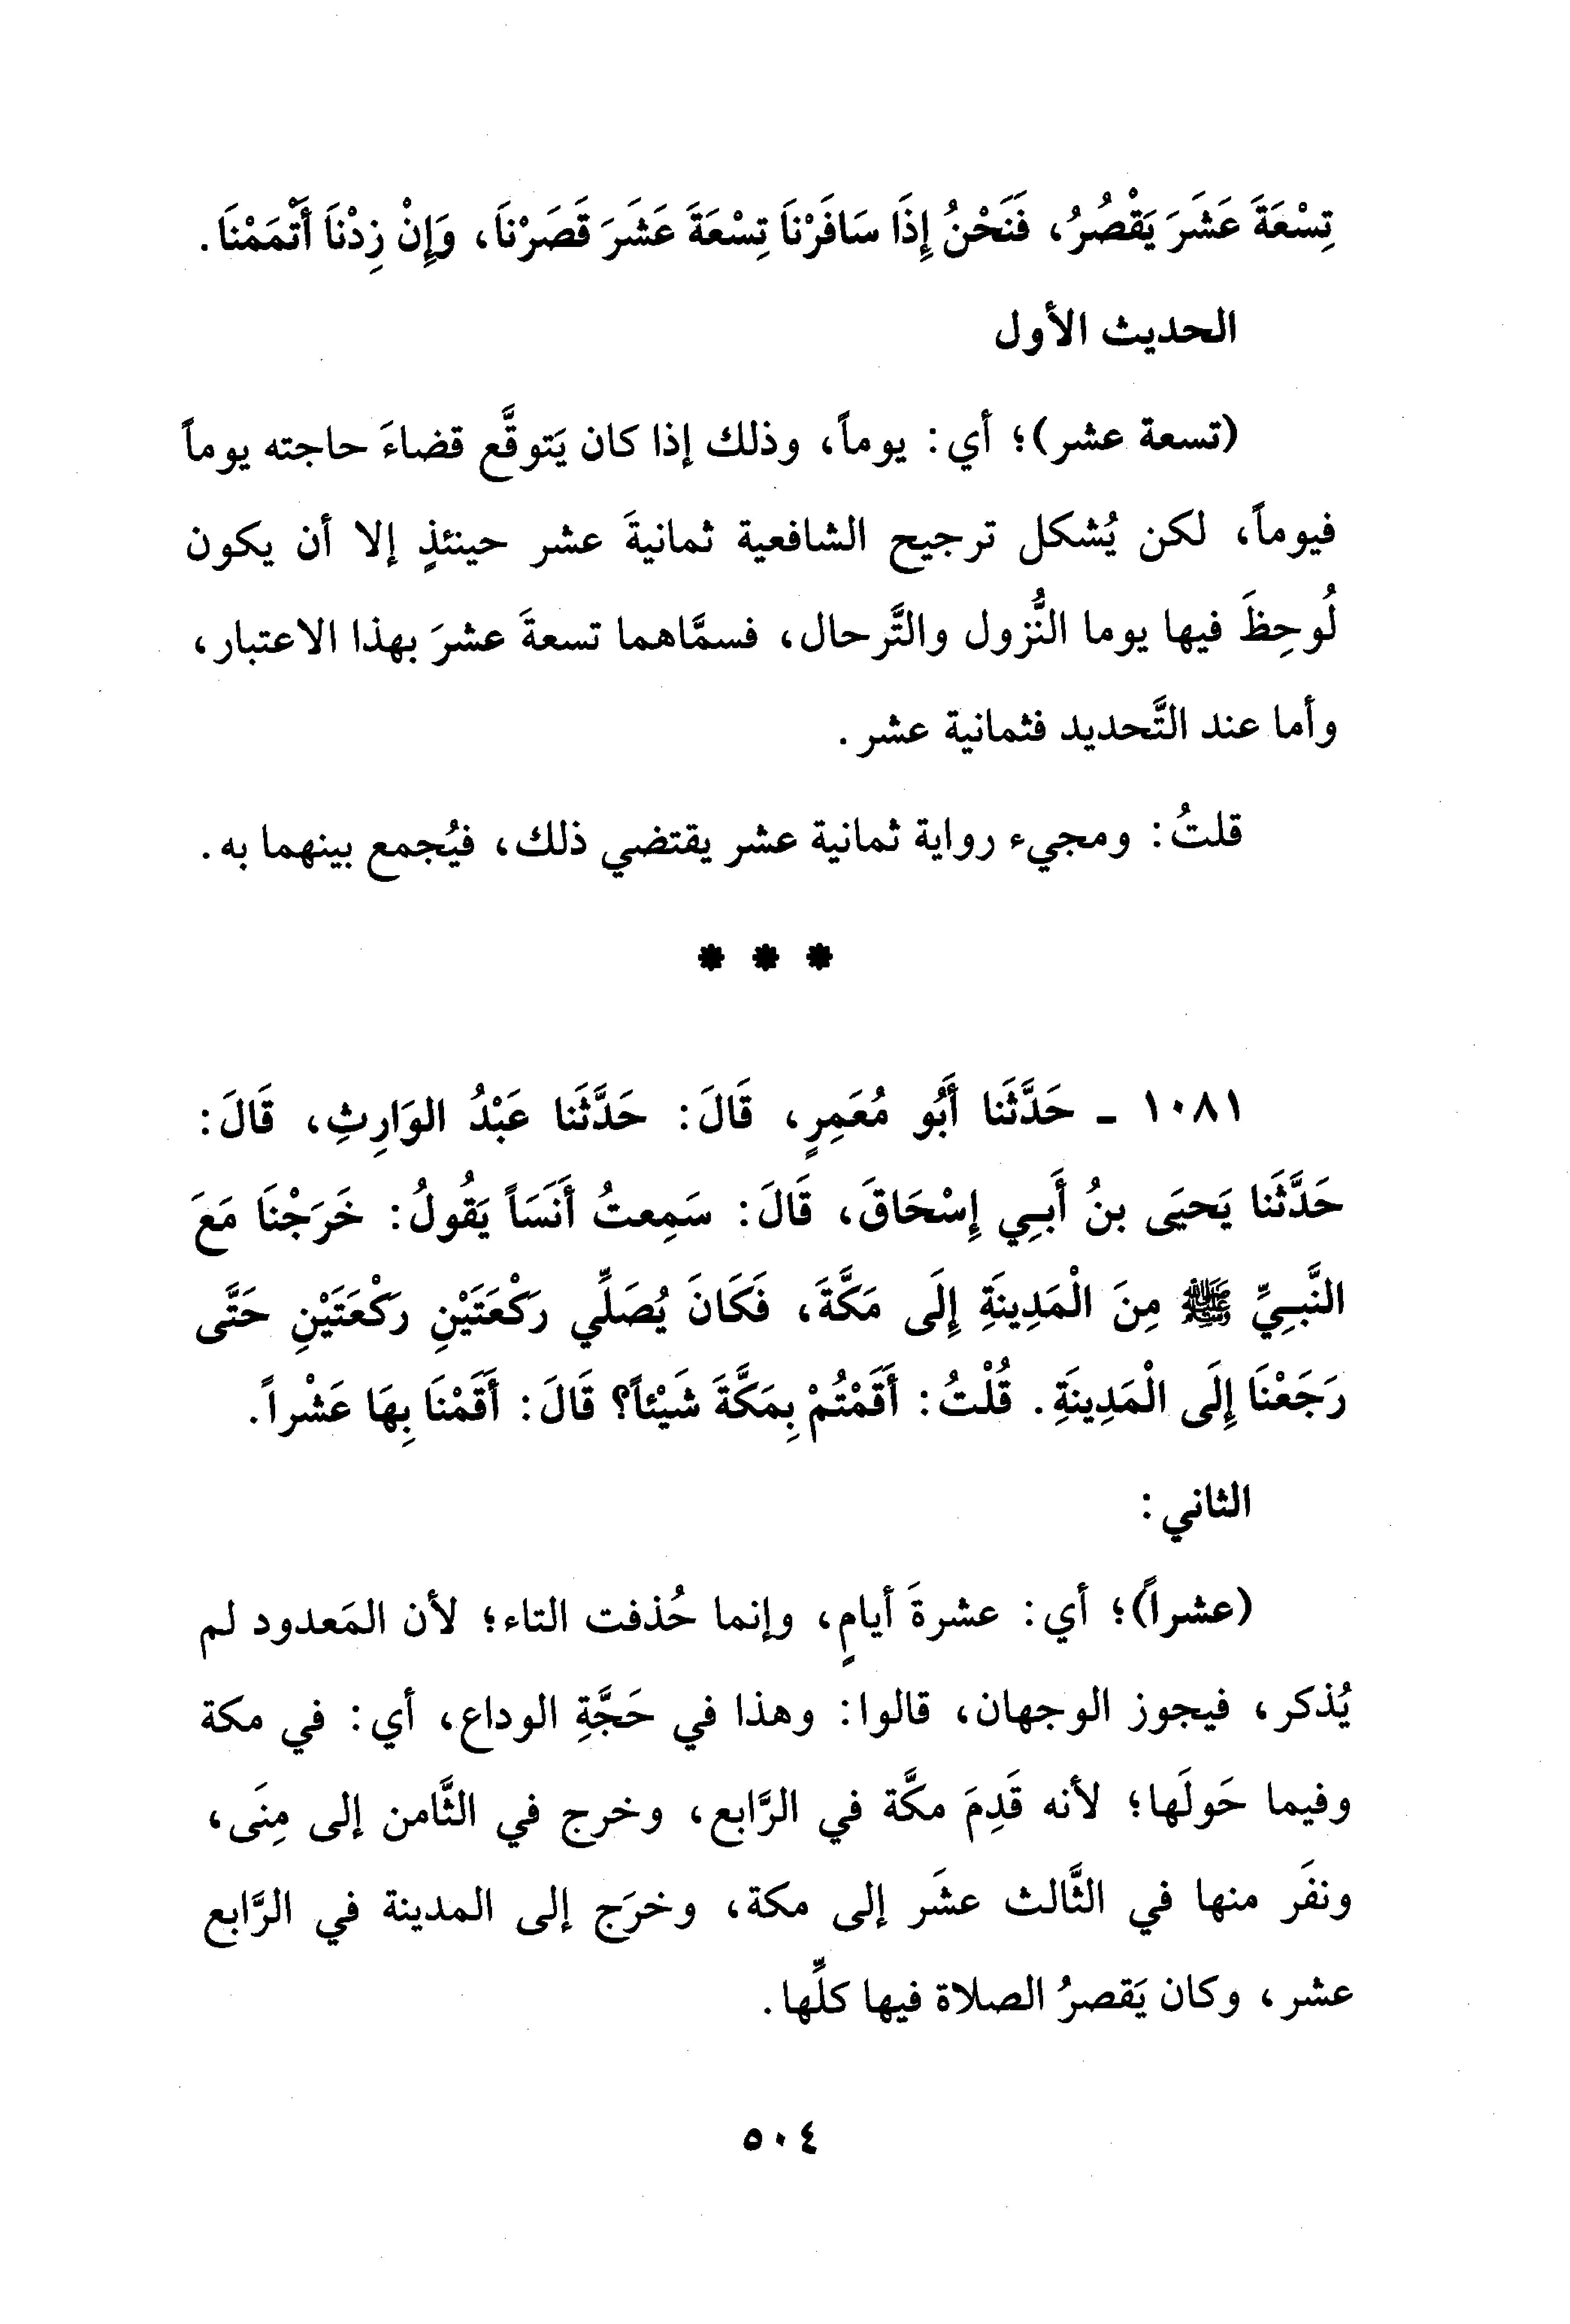 تِسْعَةَ عَشَرَ يَقْصُرُ، فَنَحْنُ إِذَا سَافَرْنَا تِسْعَةَ عَشَرَ قَصَرْنَا، وَإِنْ زِدْنَا أَتْمَمْنَا.
الحديث الأول
(تسعة عشر)؛ أي: يوماً، وذلك إذا كان يَتوقَّع قضاءَ حاجته يوماً
فيوماً، لكن يُشكل ترجيح الشافعية ثمانيةَ عشر حينئذٍ إلا أن يكون
لُوحِظَ فيها يوما النُّزول والتَّرحال، فسمَّاهما تسعةَ عشرَ بهذا الاعتبار،
وأما عند التَّحديد فثمانية عشر.
قلتُ: ومجيء رواية ثمانية عشر يقتضي ذلك، فيُجمع بينهما به.
* * *
١٠٨١ - حَدَّثَنا أَبُو مُعَمِرٍ، قَالَ: حَدَّثَنا عَبْدُ الوَارِثِ، قَالَ:
حَدَّثَنا يَحيَى بنُ أَبِي إِسْحَاقَ، قَالَ: سَمِعتُ أَنَسَاً يَقُولُ: خَرَجْنَا مَعَ
النَّبِيِّ ﷺ مِنَ الْمَدِينَةِ إِلَى مَكَّةَ، فَكَانَ يُصَلِّي رَكْعَتَيْنِ رَكْعَتَيْنِ حَتَّى
رَجَعْنَا إِلَى الْمَدِينَةِ. قُلْتُ: أَقَمْتُمْ بِمَكَّةَ شَيْئاً؟ قَالَ: أَقَمْنَا بِهَا عَشْراً.
الثاني:
(عشراً)؛ أي: عشرةَ أيامٍ، وإنما حُذفت التاء؛ لأن المَعدود لم
يُذكر، فيجوز الوجهان، قالوا: وهذا في حَجَّةِ الوداع، أي: في مكة
وفيما حَولَها؛ لأنه قَدِمَ مكَّة في الرَّابع، وخرج في الثَّامن إلى مِنَى،
ونفَر منها في الثَّالث عشَر إلى مكة، وخرَج إلى المدينة في الرَّابع
عشر، وكان يَقصرُ الصلاة فيها كلِّها.
٥٠٤